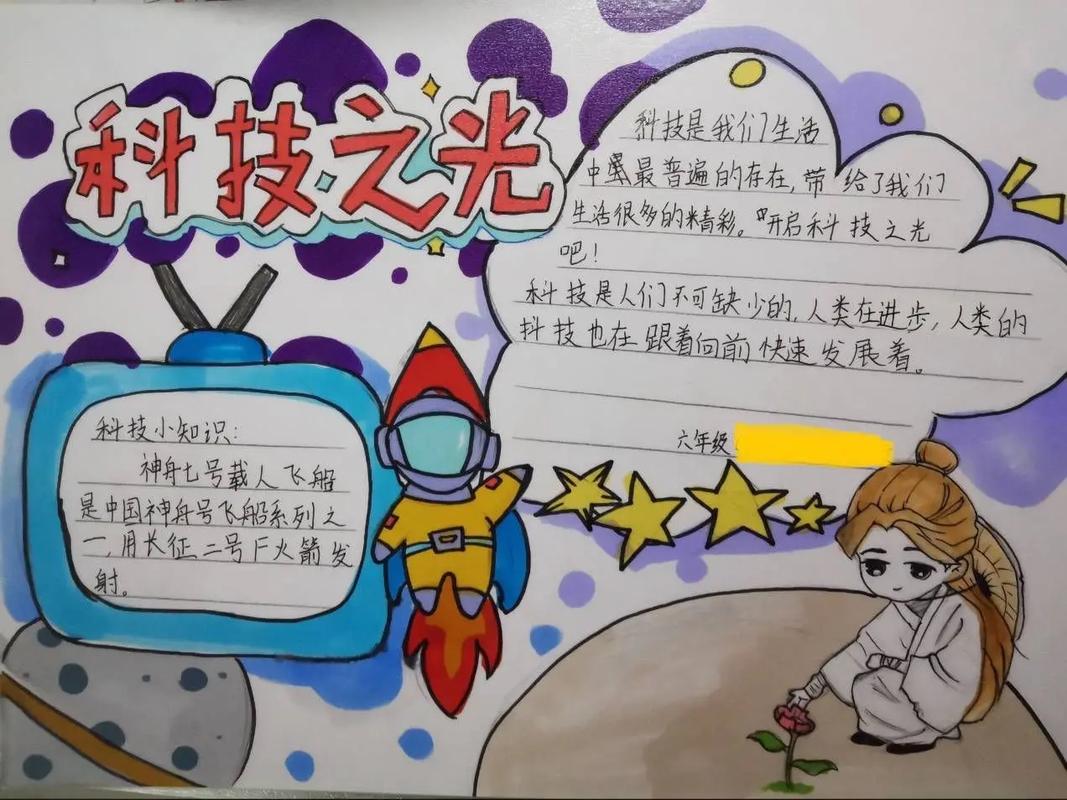 科技之光
科技是我们生活
中最普遍的存在，带给了我们
生活很多的精彩。开启科技之光
吧！
科技是人们不可缺少的，人类在进步，人类的
科技也在跟着向前快速发展着。
六年级
科技小知识：
神舟七号载人飞船
是中国神舟号飞船系列之
一，用长征二号F火箭发
射。